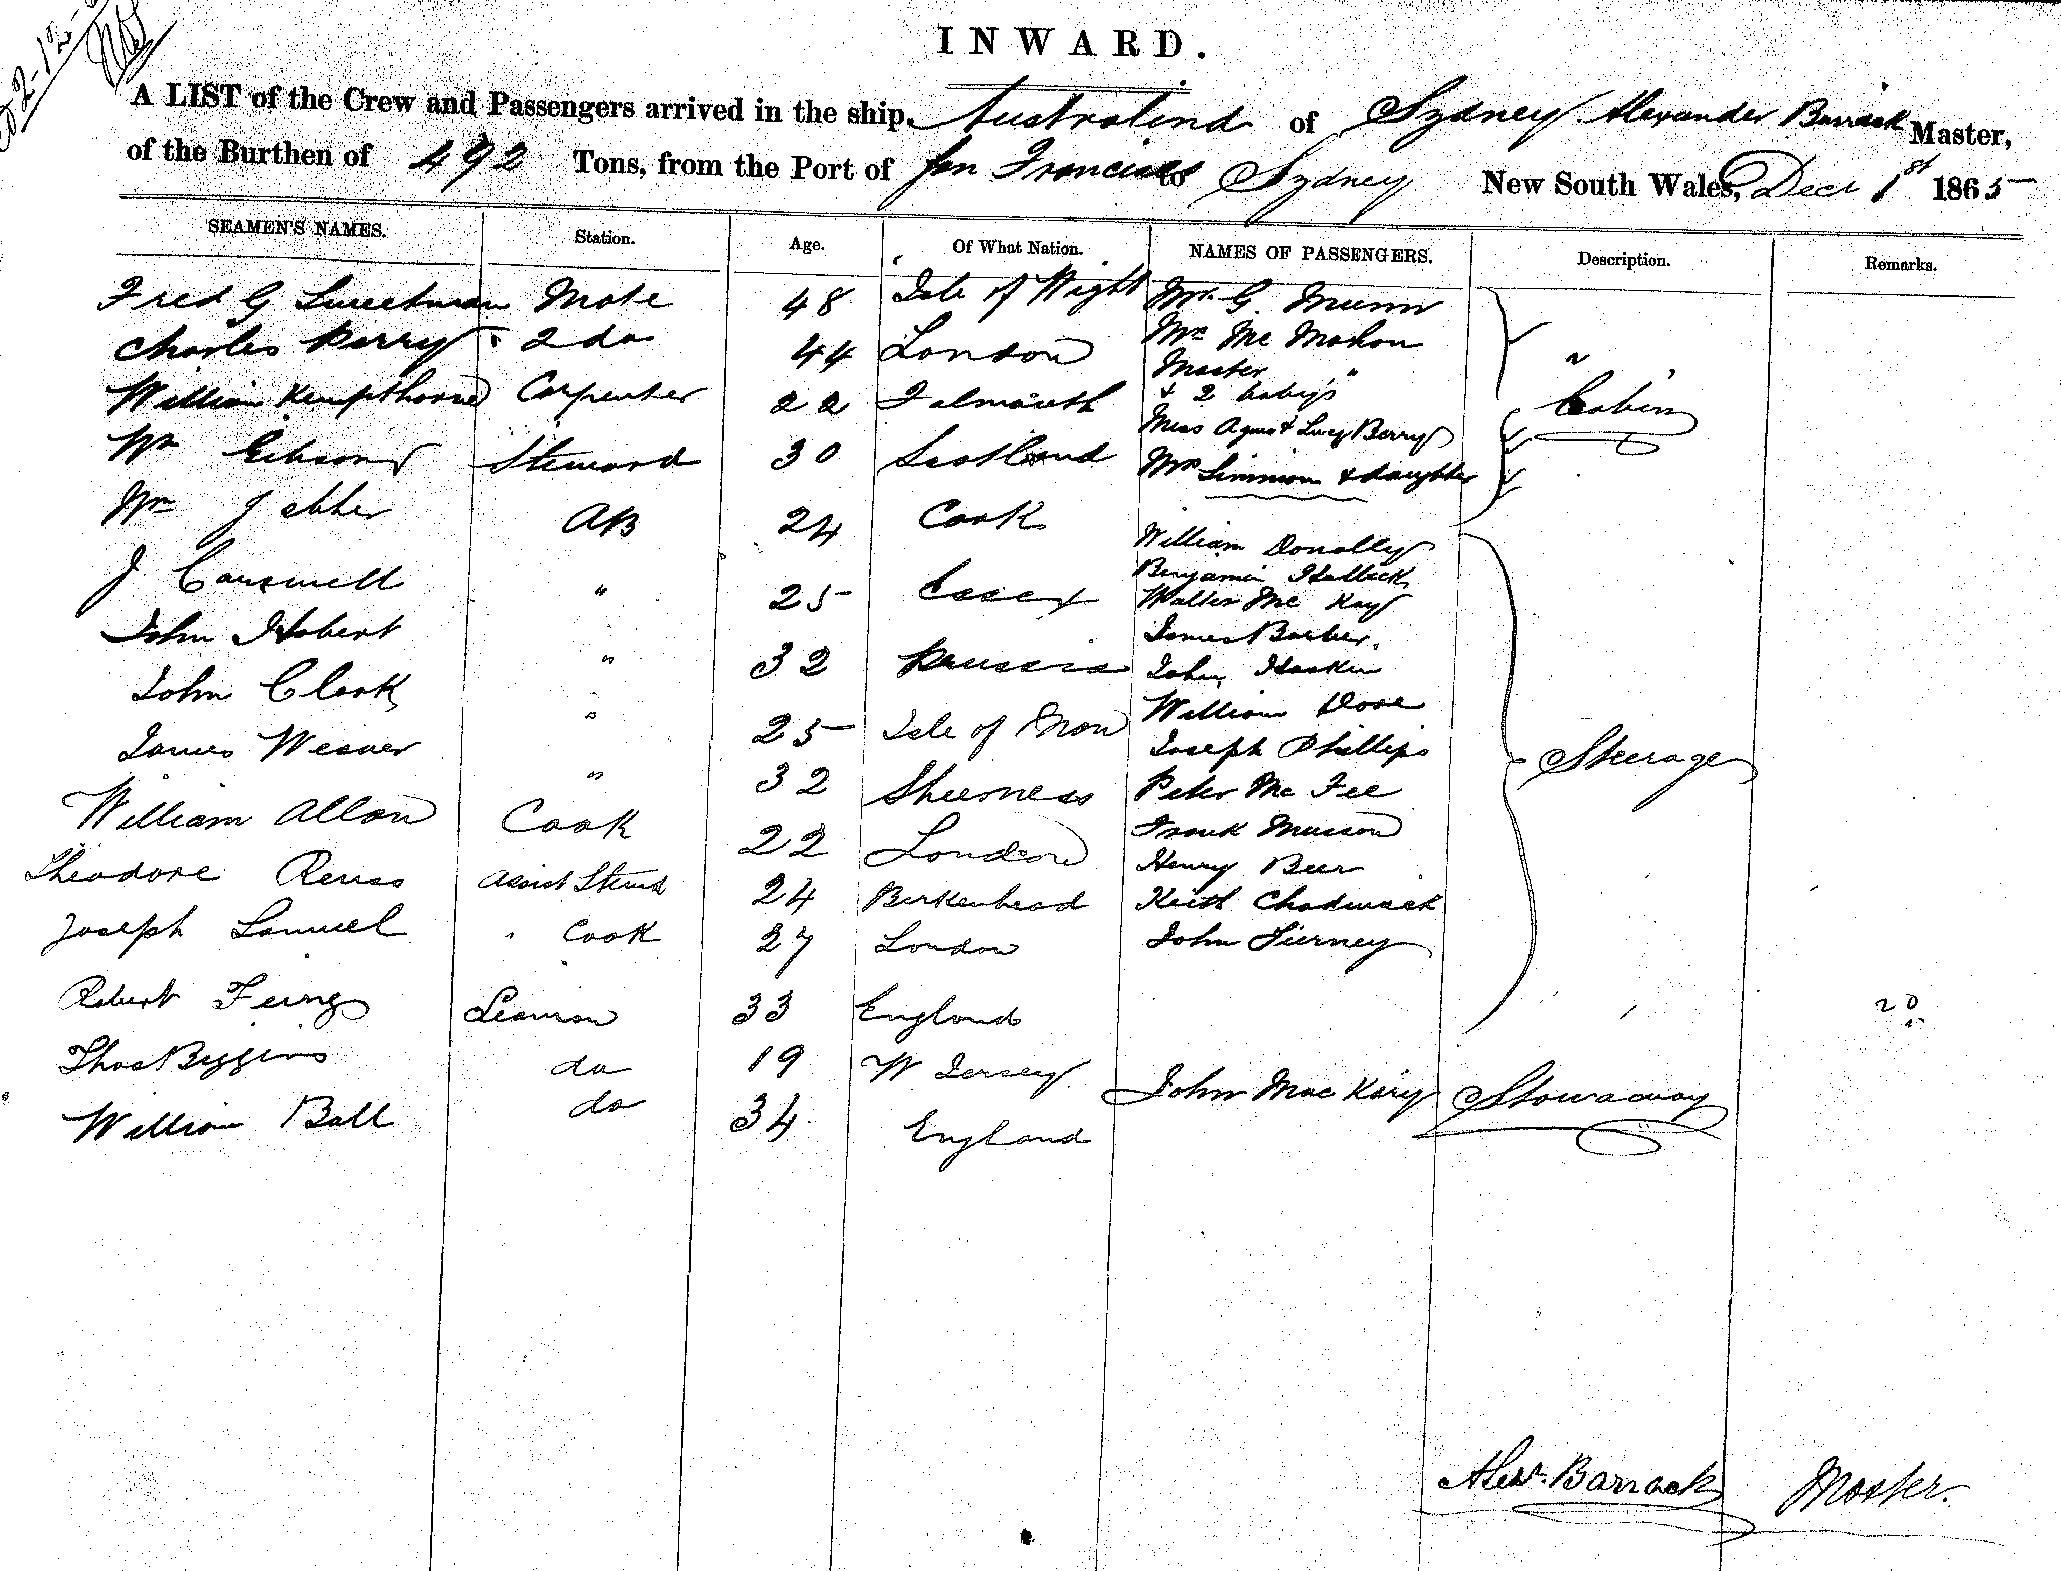 INWARD.
A LIST of the Crew and Passengers arrived in the ship, Australind of Sydney Alexander Barrack Master,
of the Burthen of 492 Tons, from the Port of San Francisco to Sydney New South Wales, Decr 1st 1865
SEAMEN'S NAMES. Station. Age. Of What Nation. NAMES OF PASSENGERS. Description. Remarks.
Fred G Sweetman Mate 48 Isle of Wight Mr. G. Munn
Charles Perry 2 do 44 London Mrs Mc Mahon
Master "
William Kempthorne Carpenter 22 Falmouth & 2 babys Cabin
Miss Agnes & Lucy Berry
Wm Gibson Steward 30 Scotland Mrs Simmion & daughter
Wm Jebber AB 24 Cook
William Donally
Benjamin Halbeck
J Carswell " 25 Essex Walter Mc Kay
John Hobert " 32 Prussia James Barber.
John Haskin
John Clark " 25 Isle of Man William Dove
Joseph Phillips Steerage
James Weaver " 32 Sheerness Peter Mc Fee
William Allan Cook 22 London Frank Musson
Henry Beer
Theodore Reuss Assist Steward 24 Birkenhead Keith Chadwick
Joseph Samuel " Cook 27 London John Tierney
Robert Seaman 33 England 20
Thos Biggins do 19 W Jersey
John Mac Kary Stowaway
William Ball do 34 England
Alexr. Barrack Master.